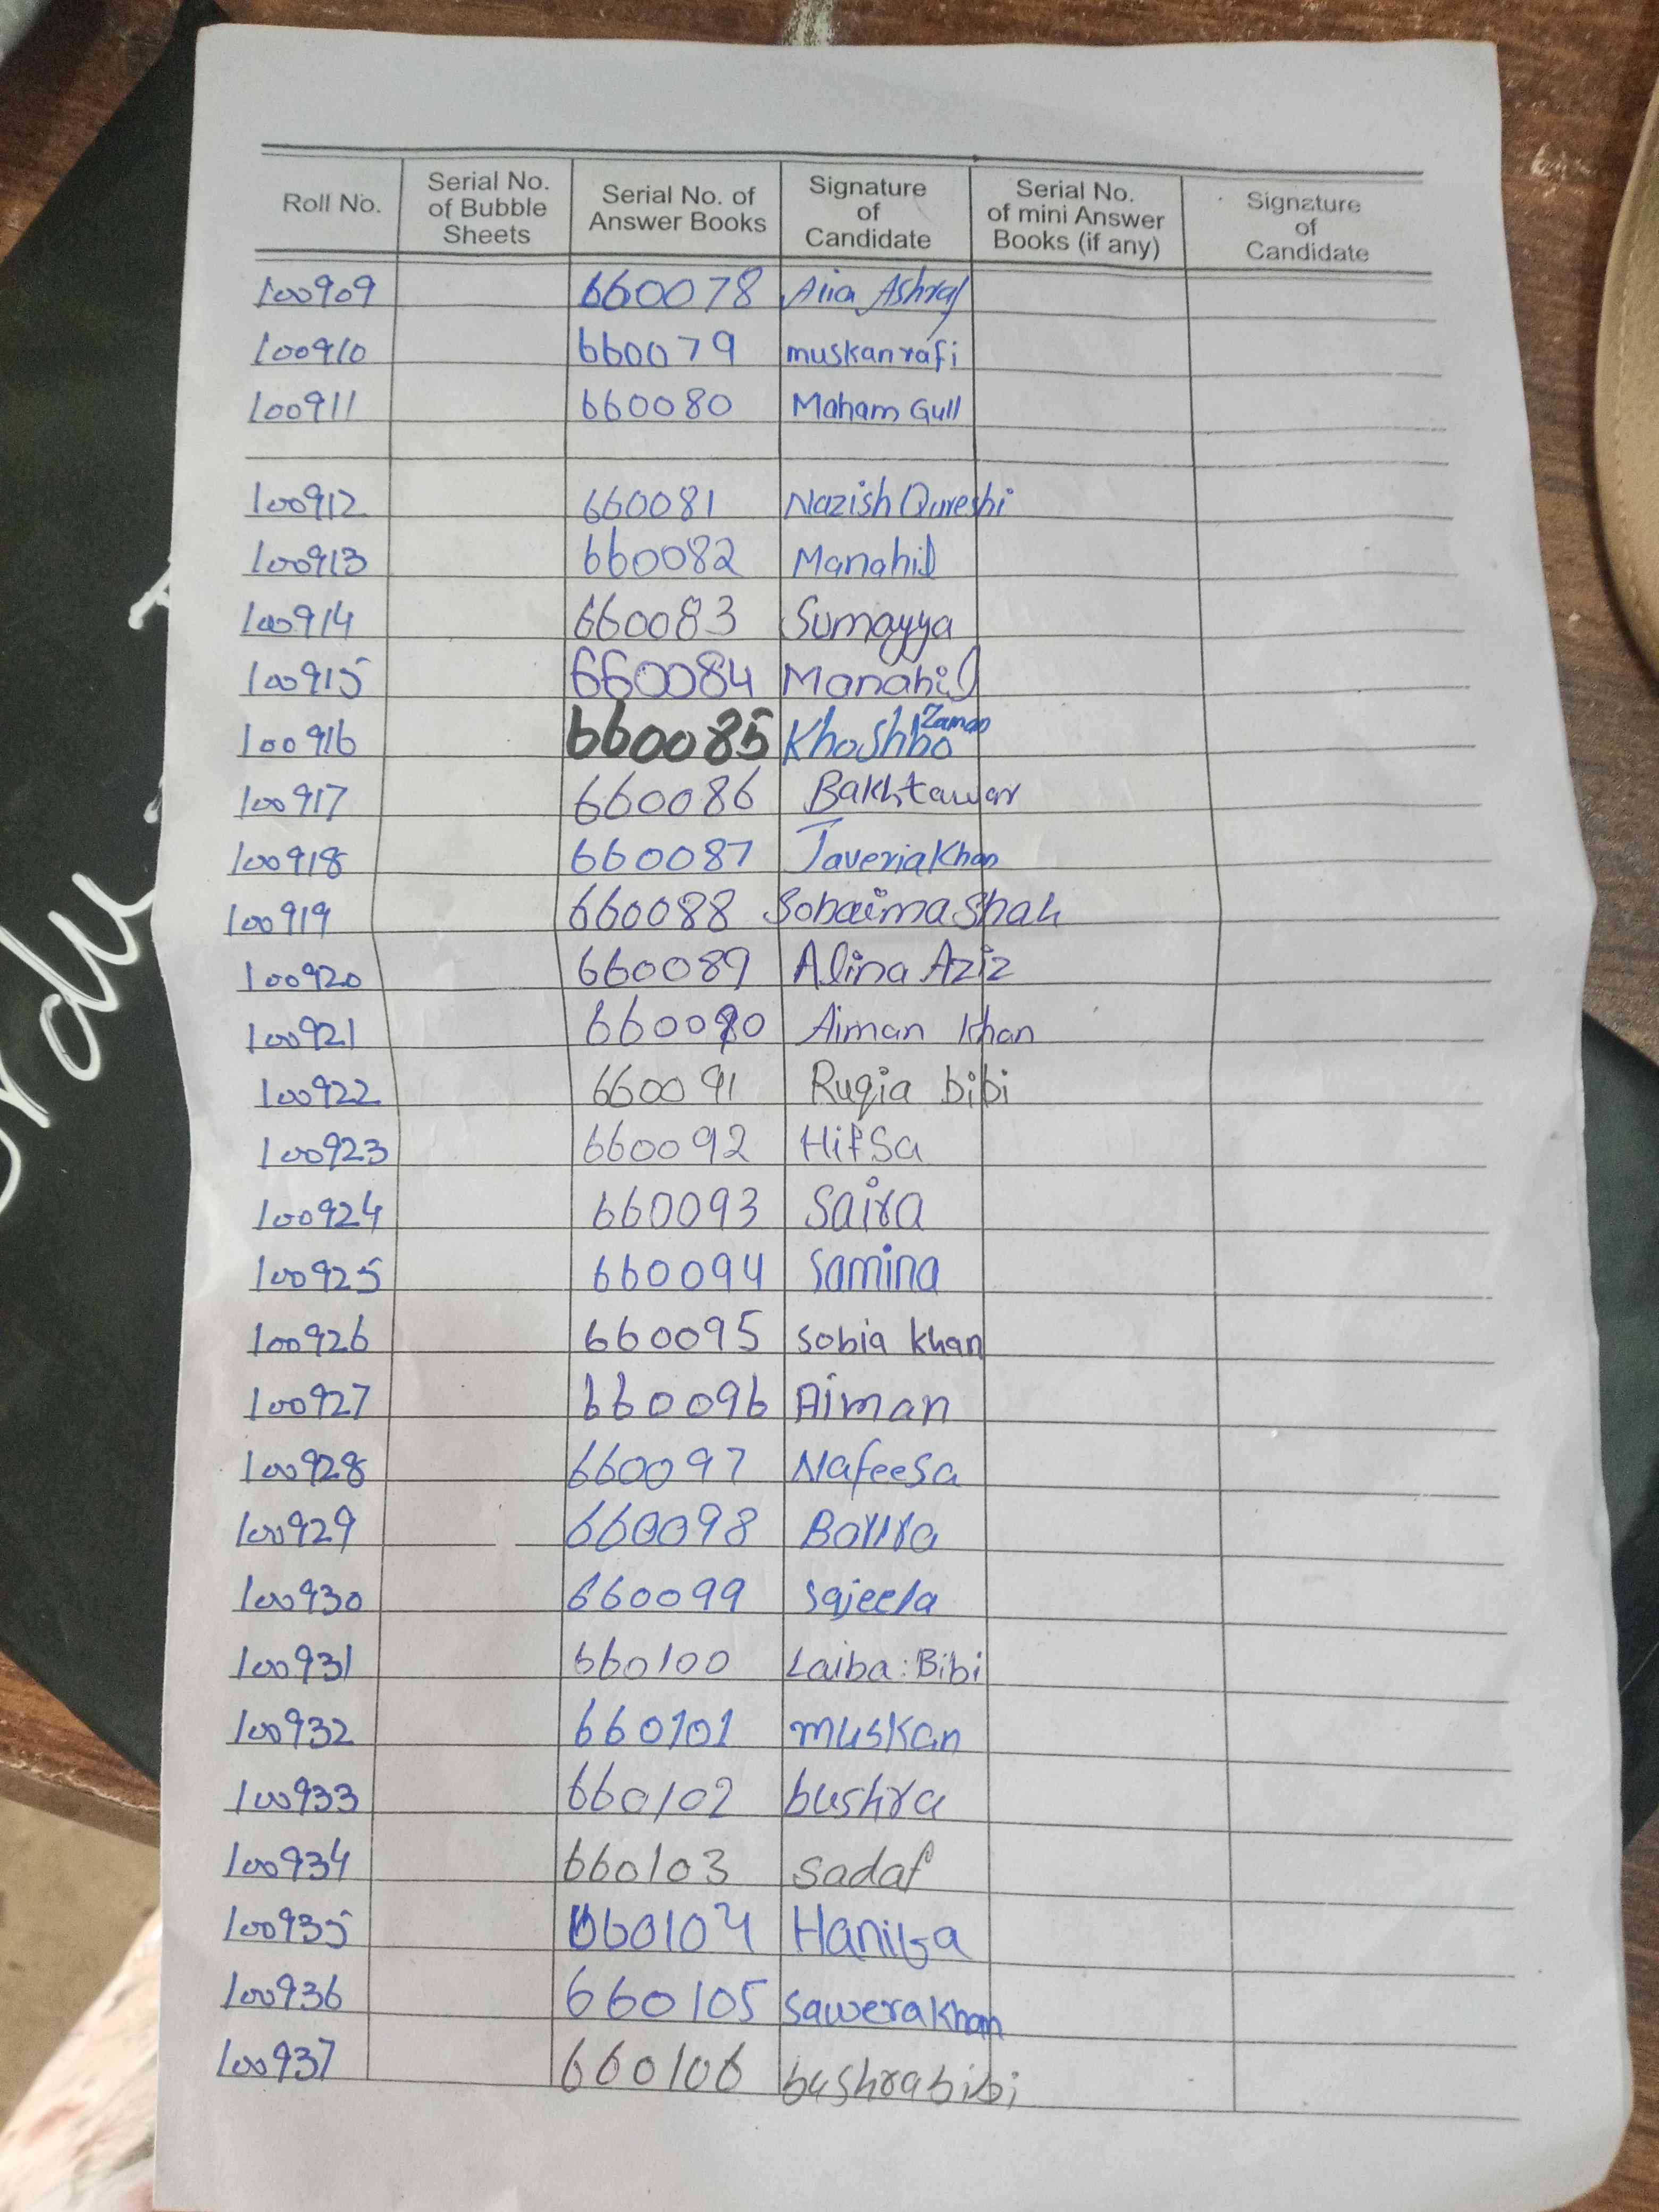 Roll No. Serial No. of Bubble Sheets Serial No. of Answer Books Signature of Candidate Serial No. of mini Answer Books (if any) Signature of Candidate
100909 660078 Alia Ashraf
100910 660079 muskan rafi
100911 660080 Maham Gull
100912 660081 Nazish Qureshi
100913 660082 Manahil
100914 660083 Sumayya
100915 660084 Manahil
100916 660085 Khoshbo Zaman
100917 660086 Bakhtawar
100918 660087 Javeria Khan
100919 660088 Sohaima Shah
100920 660089 Alina Aziz
100921 660090 Aiman Khan
100922 660091 Ruqia bibi
100923 660092 Hifsa
100924 660093 Saira
100925 660094 Samina
100926 660095 Sobia khan
100927 660096 Aiman
100928 660097 Nafeesa
100929 660098
100930 660099 Sajeela
100931 660100 Laiba: Bibi
100932 660101 muskan
100933 660102 bushra
100934 660103 Sadaf
100935 660104 Haniya
100936 660105 Sawera Khan
100937 660106 bushra bibi